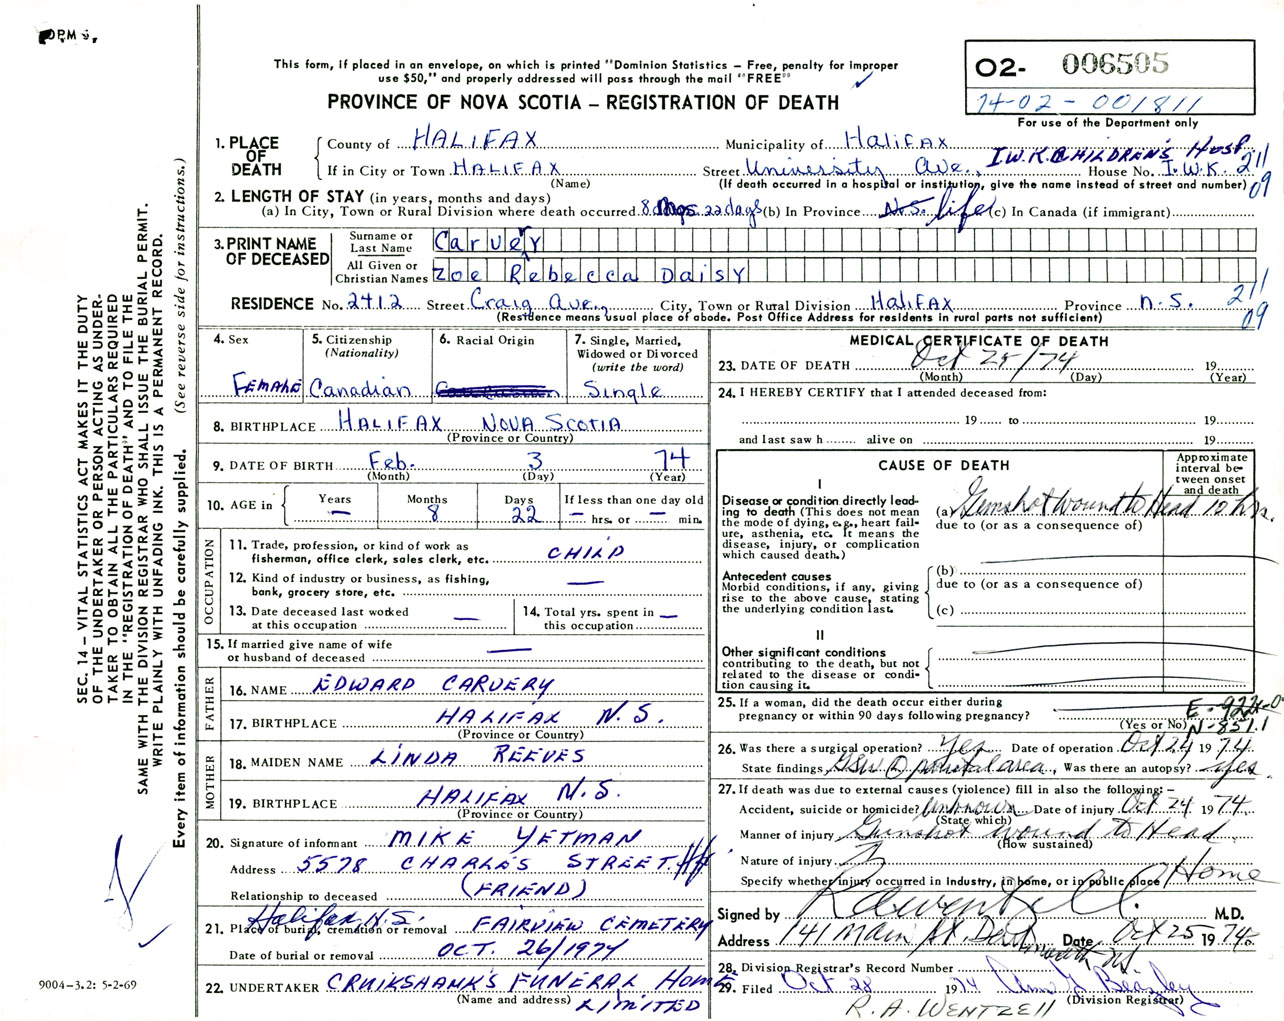 FORM 6.
This form, if placed in an envelope, on which is printed "Dominion Statistics – Free, penalty for improper
use $50," and properly addressed will pass through the mail "FREE"
PROVINCE OF NOVA SCOTIA – REGISTRATION OF DEATH
O2- 006505
74-02-001811
For use of the Department only
1. PLACE OF DEATH
County of HALIFAX Municipality of HALIFAX
I.W.K. CHILDREN'S Hosp.
If in City or Town HALIFAX Street University Ave., House No. I.W.K. 211
(Name) (If death occurred in a hospital or institution, give the name instead of street and number) 09
2. LENGTH OF STAY (in years, months and days)
(a) In City, Town or Rural Division where death occurred 8 mos 22 days (b) In Province N.S. life (c) In Canada (if immigrant)
3. PRINT NAME OF DECEASED
Surname or Last Name Carvery
All Given or Christian Names Zoe Rebecca Daisy
RESIDENCE No. 2412 Street Craig Ave., City, Town or Rural Division Halifax Province N.S. 211
(Residence means usual place of abode. Post Office Address for residents in rural parts not sufficient) 09
4. Sex
FEMALE
5. Citizenship
(Nationality)
Canadian
6. Racial Origin
7. Single, Married,
Widowed or Divorced
(write the word)
Single
8. BIRTHPLACE HALIFAX NOVA SCOTIA
(Province or Country)
9. DATE OF BIRTH Feb. 3 74
(Month) (Day) (Year)
10. AGE in
Years —
Months 8
Days 22
If less than one day old
— hrs. or — min.
OCCUPATION
11. Trade, profession, or kind of work as
fisherman, office clerk, sales clerk, etc. CHILD
12. Kind of industry or business, as fishing,
bank, grocery store, etc. —
13. Date deceased last worked
at this occupation —
14. Total yrs. spent in
this occupation —
15. If married give name of wife
or husband of deceased —
FATHER
16. NAME EDWARD CARVERY
17. BIRTHPLACE HALIFAX N.S.
(Province or Country)
MOTHER
18. MAIDEN NAME LINDA REEVES
19. BIRTHPLACE HALIFAX N.S.
(Province or Country)
20. Signature of informant MIKE YETMAN
Address 5578 CHARLES STREET. Hfx
Relationship to deceased (FRIEND)
Halifax N.S.
21. Place of burial, cremation or removal FAIRVIEW CEMETERY
Date of burial or removal OCT. 26/1974
22. UNDERTAKER CRUIKSHANK'S FUNERAL HOME
(Name and address) LIMITED
MEDICAL CERTIFICATE OF DEATH
23. DATE OF DEATH Oct 25/74 19
(Month) (Day) (Year)
24. I HEREBY CERTIFY that I attended deceased from:
19 to 19
and last saw h alive on 19
CAUSE OF DEATH
Approximate
interval be-
tween onset
and death
I
Disease or condition directly lead-
ing to death (This does not
mean the mode of dying, e.g., heart fail-
ure, asthenia, etc. It means the
disease, injury, or complication
which caused death.)
(a) Gunshot wound to Head 10 hrs.
due to (or as a consequence of)
Antecedent causes
Morbid conditions, if any, giving
rise to the above cause, stating
the underlying condition last.
(b)
due to (or as a consequence of)
(c)
II
Other significant conditions
contributing to the death, but not
related to the disease or condi-
tion causing it.
25. If a woman, did the death occur either during
pregnancy or within 90 days following pregnancy?
(Yes or No)
E-922-0
N-851.1
26. Was there a surgical operation? Yes Date of operation Oct 24 1974
State findings GSW parietal area, Was there an autopsy? yes
27. If death was due to external causes (violence) fill in also the following: –
Accident, suicide or homicide? Unknown Date of injury Oct 24 1974
(State which)
Manner of injury Gunshot wound to Head
(How sustained)
Nature of injury
Specify whether injury occurred in industry, in home, or in public place Home
Signed by M.D.
Address 141 Main St. Dartmouth N.S. Date Oct 25 1974
28. Division Registrar's Record Number
29. Filed Oct 28 1974
(Division Registrar)
R. A. WENTZELL
SEC. 14 – VITAL STATISTICS ACT MAKES IT THE DUTY
OF THE UNDERTAKER OR PERSON ACTING AS UNDER-
TAKER TO OBTAIN ALL THE PARTICULARS REQUIRED
IN THE "REGISTRATION OF DEATH" AND TO FILE THE
SAME WITH THE DIVISION REGISTRAR WHO SHALL ISSUE THE BURIAL PERMIT.
WRITE PLAINLY WITH UNFADING INK. THIS IS A PERMANENT RECORD.
Every item of information should be carefully supplied. (See reverse side for instructions.)
9004-3.2: 5-2-69